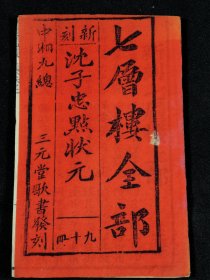 七層樓全部
新刻
沈子忠點狀元
九十四
中湘九總
三元堂歌書發刻